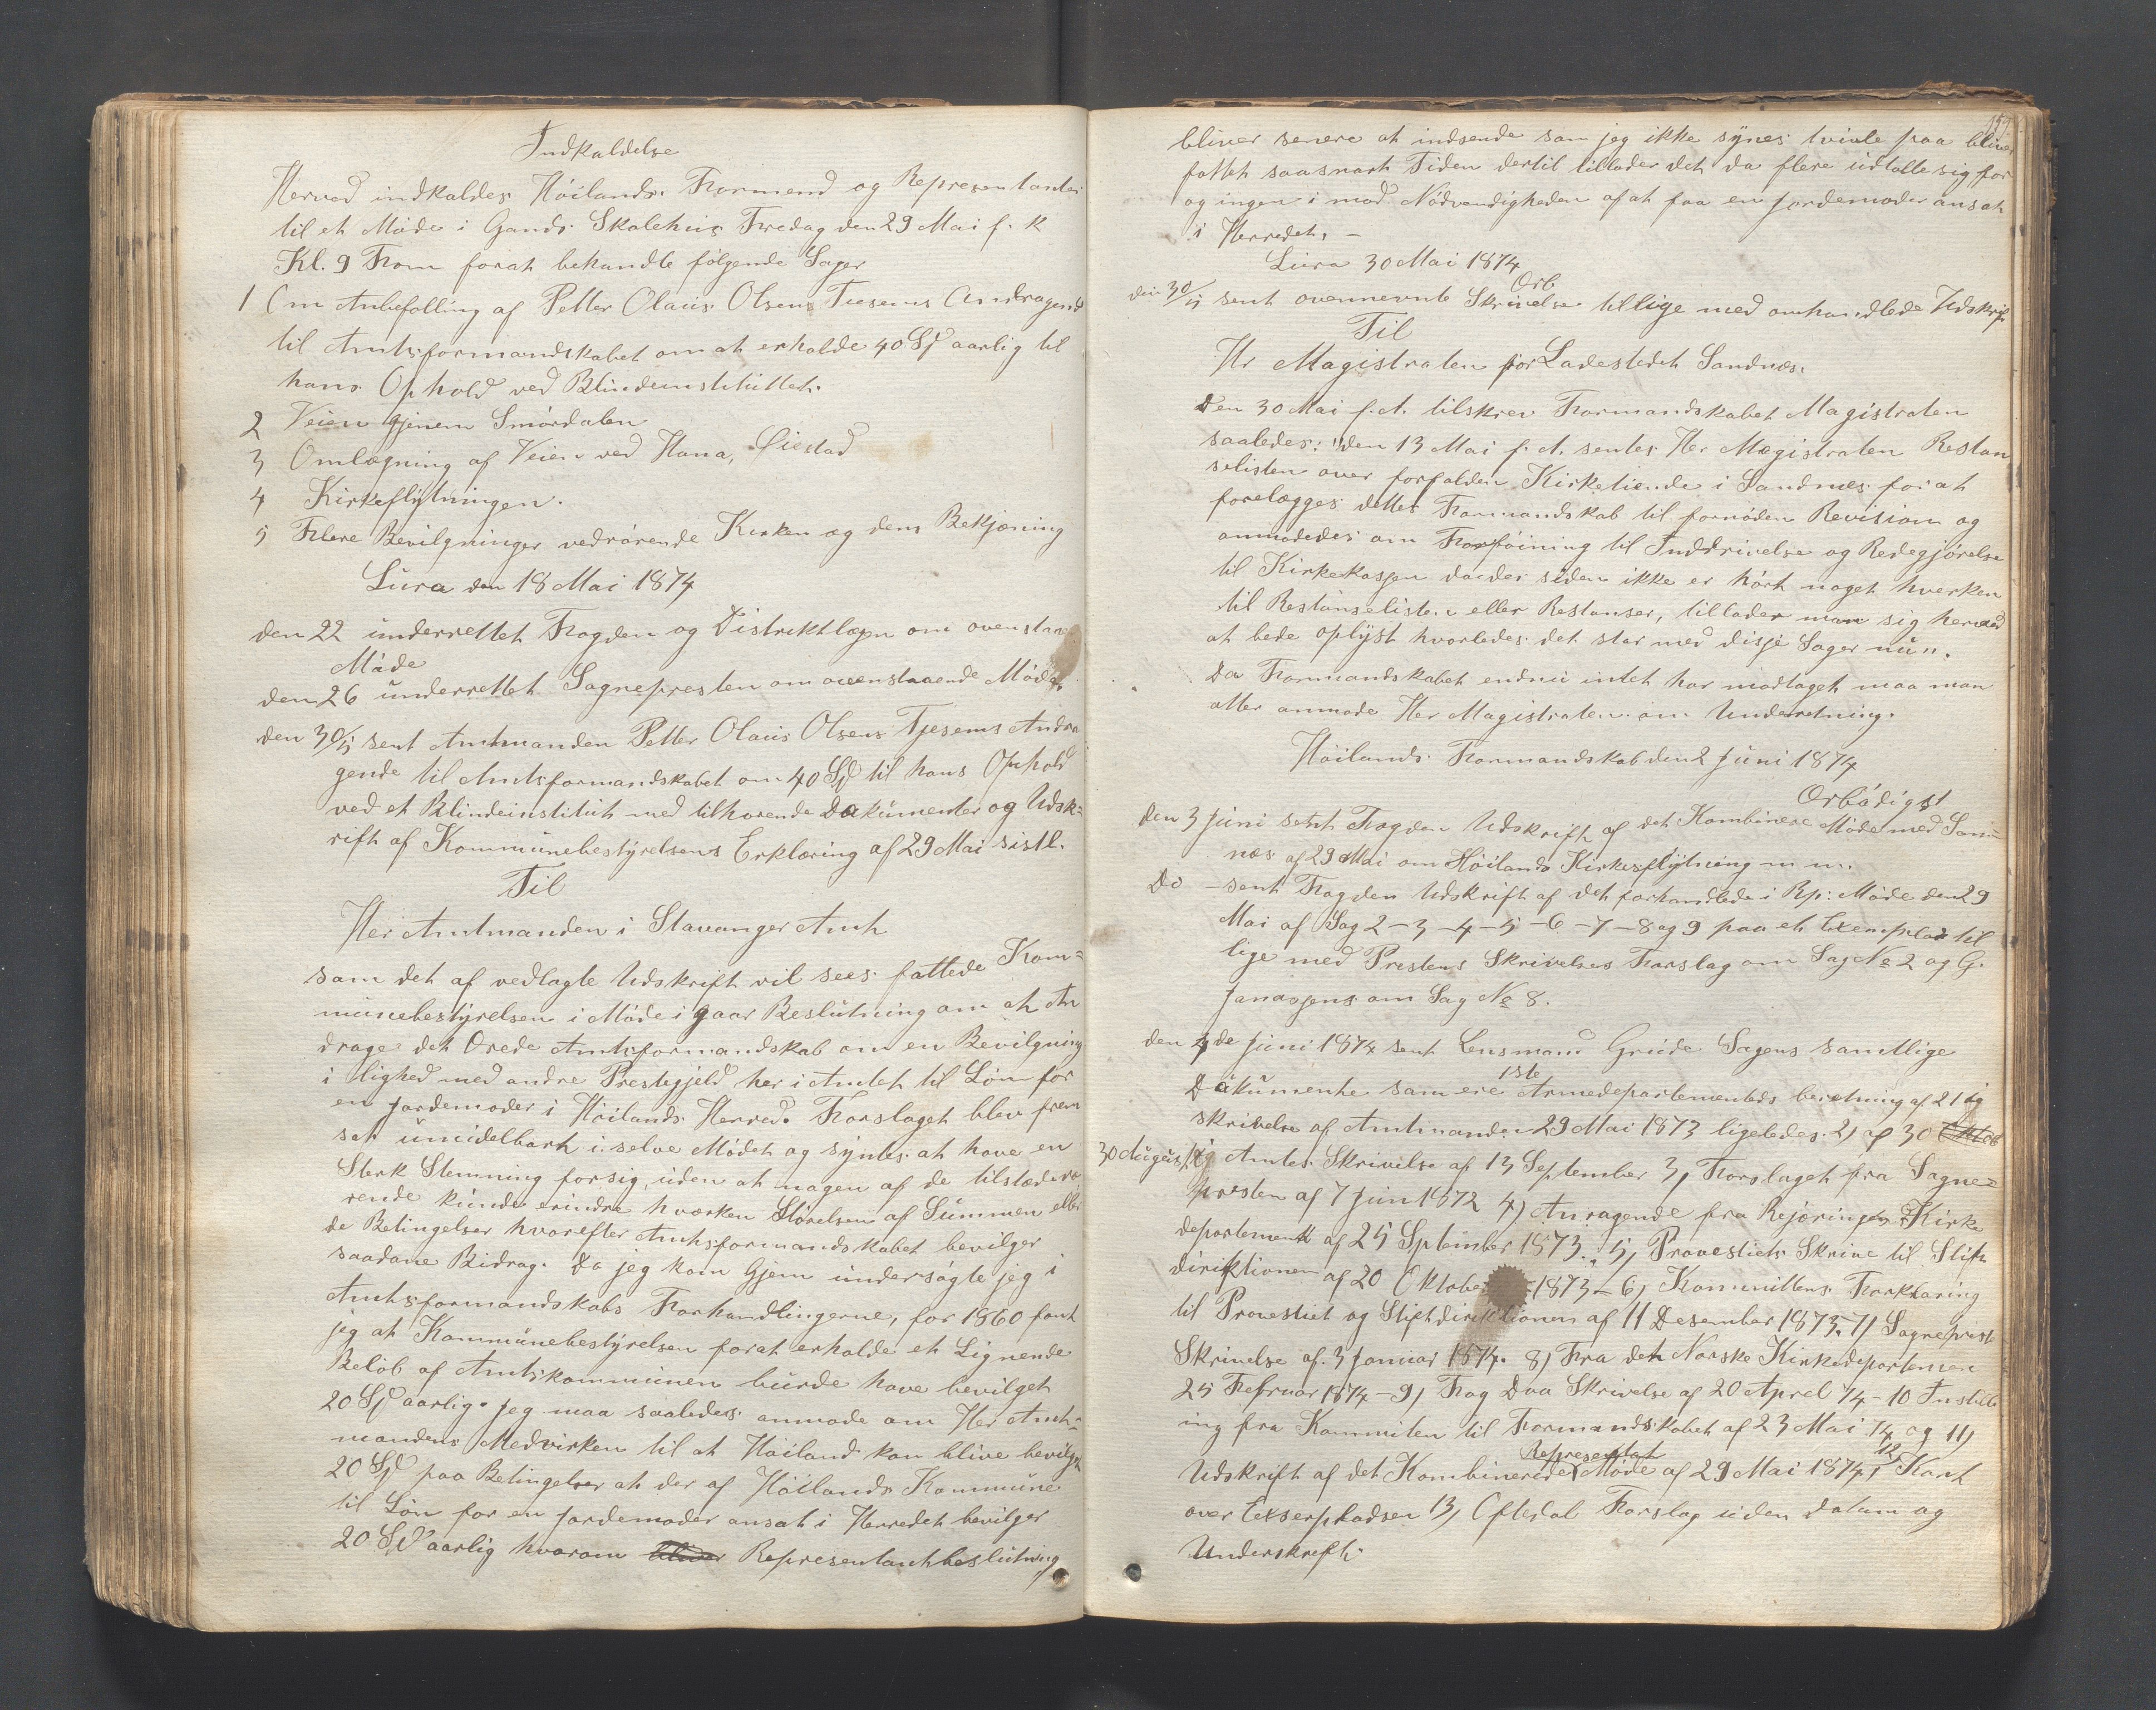 Indkaldelse
Herved indkaldes Höilands Formend og Representanter
til et Möde i Gands Skolehus Fredag den 29 Mai f. k
Kl. 9 Form forat behandle følgende Sager
1 Om Anbefalling af Petter Olaus Olsens Andragende
til Amtsformandskabet om at erholde 40 Spd aarlig til
hans Ophold ved Blindeinstituttet.
2 Veien gjenem Smördalen
3 Omlægning af Veien ved Hana,
4 Kirkeflytningen.
5 Flere Bevilgninger vedrörende Kirken og dens Betjening
Lura den 18 Mai 1874
den 22 underrettet Fogden og Distriktlægen om ovenstaae
Möde
den 26 underrettet Sognepresten om ovenstaaende Möde.
den 30/5 sent Amtmanden Petter Olaus Olsens Tjesems Andra
gende til Amtsformandskabet om 40 Spd til hans Ophold
ved et Blindeinstitut med tilhorende Dokumenter og Udsk=
rift af Kommunebestyrelsens Erklæring af 29 Mai sistl.
Til
Her Amtmanden i Stavanger Amt
som det af vedlagte Udskrift vil sees fattede Kom=
munebestyrelsen i Möde i gaar Beslutning om at An
drage det Ærede Amtsformandskab om en Bevilgning
i lighed med andre Prestegjeld her i Amtet til Lön for
en Jordemoder i Höilands Herred. Forslaget blev frem
sat umidelbart i selve Mödet og syntes at have en
Sterk Stemning for sig, uden at nogen af de tilstædevæ
rende kunde erindre hværken Störelsen af Summen eller
de Betingelser hvorefter Amtsformandskabet bevilger
saadane Bidrag. Da jeg kom Hjem undersögte jeg i
Amtsformandskabs Forhandlingerne, for 1860 fant
jeg at Kommunebestyrelsen forat erholde et Lignende
Belöb af Amtskommunen burde have bevilget
20 Spd aarlig. Jeg maa saaledes anmode om Her Amt=
mandens Medvirken til at Höiland kan blive bevilget
20 Spd paa Betingelser at der af Höilands Kommune
til Lön for en Jordemoder ansat i Herredet bevilger
20 Spd aarlig hvorom bliver Representantbeslutning
bliver senere at indsende som jeg ikke synes tvivle paa bliver
fattet saasnart Tiden dertil tillader det da flere udtalte sig for
og ingen imod Nödvendigheden af at faa en Jordemoder ansat
i Herredet. –
Lura 30 Mai 1874
Orb
den 30/5 sent ovennevnte Skrivelse tillige med omhandlede Udskrift
Til
Hr Magistraten for Ladestedet Sandnæs.
Den 30 Mai f. A. tilskrev Formandskabet Magistraten
saaledes: "den 13 Mai f. A. sentes Her Magistraten Restan
selisten over forfalden Kirketiende i Sandnes for at
forelægges dettes Formandskab til fornöden Revision og
anmodedes om Forföining til Inddrivelse og Redegjörelse
til Kirkekassen da der siden ikke er hört noget hverken
til Restanselisten eller Restanser, tillader man sig herved
at bede oplyst hvorledes det star med disse Sager nu".
Da Formandskabet endnu intet har modtaget maa man
atter anmode Her Magistraten om Underretning.
Höilands Formandskab den 2 Juni 1874
Orbödigst
den 3 Juni sent Fogden Udskrift af det Kombinere Möde med San=
næs af 29 Mai om Höilands Kirkesflytning m m.
Do – sent Fogden Udskrift af det forhandlede i Rp: Möde den 29
Mai af Sag 2–3–4–5–6–7–8 og 9 paa et Exemplar til
lige med Prestens Skrivelses Forslag om Sag No 2 og G.
Janassens om Sag No 8.
den 4de Juni 1874 sent Lensmand Grude Sagens samtlige
Dokumente som ere 1ste Armedepartementeds beretning af 21 og
skrivelse af Amtmanden 29 Mai 1873 ligeledes. 2) af 30 Oktob
30 August og Amtes Skrivelse af 13 September 3, Forslaget fra Sogne=
presten af 7 Juni 1872 4) Anragende fra Rejeringen Kirke
departement af 25 September 1873. 5, Provestiets Skrive til Stift
diriktionen af 20 Oktober 1873 – 6, Kommittens Forklaring
til Provestiet og Stiftdiriktionen af 11 Desember 1873. 7) Sogneprest
Skrivelse af 3 Januar 1874. 8) Fra det Norske Kirkedepartemen
25 Februar 1874 – 9) Fog Daa Skrivelse af 20 Aprel 74 – 10 Instill
ing fra Kommiten til Formandskabet af 23 Mai 74 og 11)
Udskrift af det Kombinerede Representat Möde af 29 Mai 1874, 12 Kart
over Exserpladsen 13, Oftedal Forslag uden datum og
Underskreft.